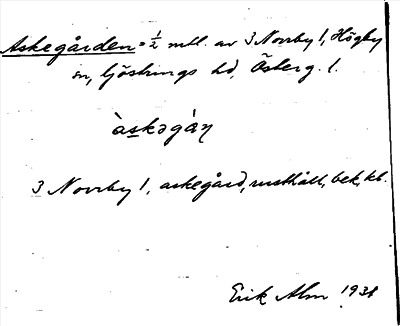 Askegården = 1/2 mtl. av 3 Norrby 1, Högby
sn, Göstrings hd, Österg. l.
àskəgàṇ
3 Norrby 1, askegård, rusthåll, bek. kb.
Erik Alm 1938